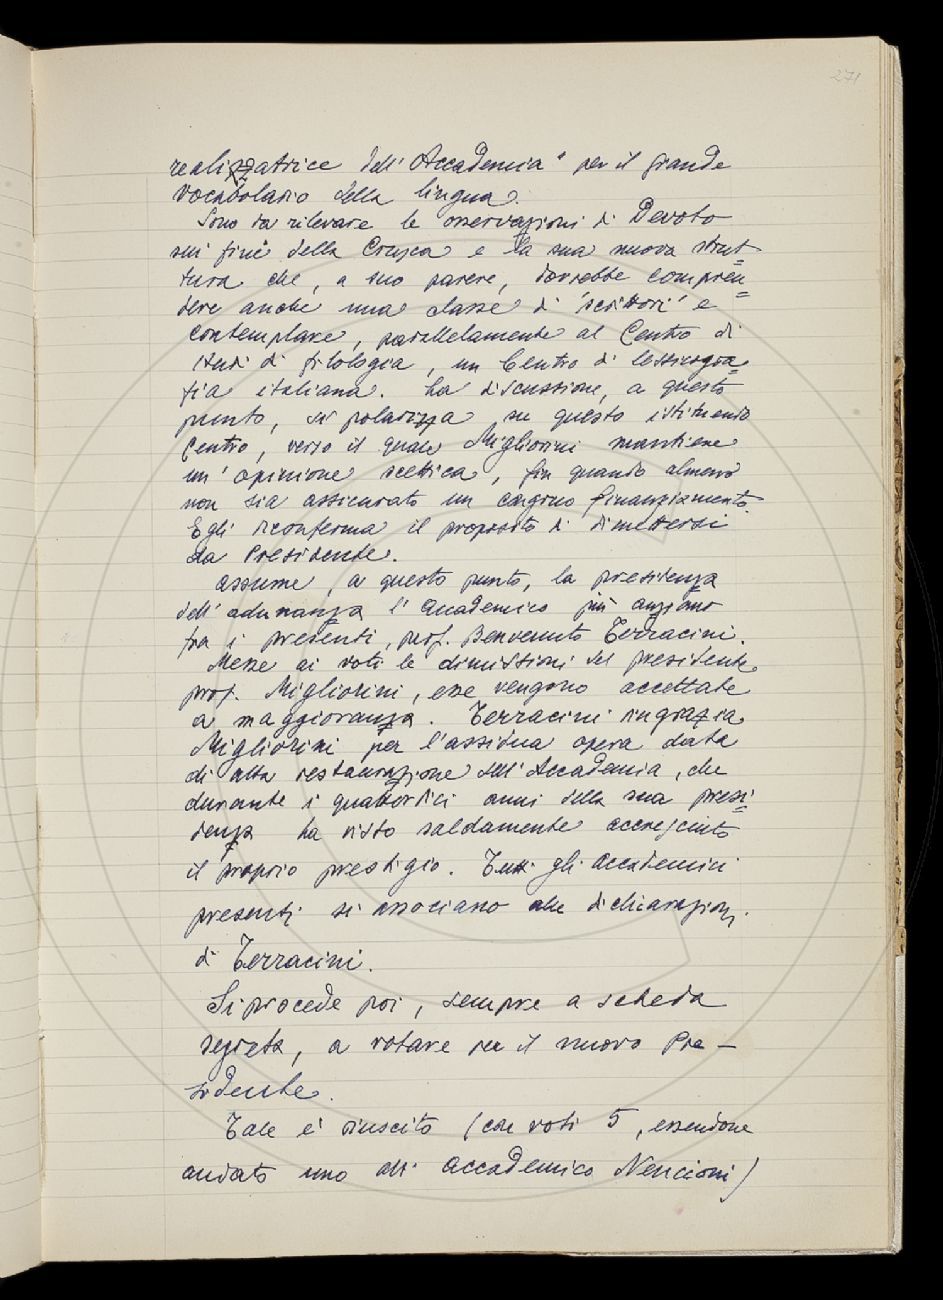 271
realizzatrice dell'Accademia" per il grande
vocabolario della lingua.
Sono da rilevare le osservazioni di Devoto
sui fini della Crusca e la sua nuova strut=
tura che, a suo parere, dovrebbe compren=
dere anche una classe di 'scrittori' e
contemplare, parallelamente al Centro di
studi di filologia, un Centro di lessicogra=
fia italiana. La discussione, a questo
punto, si polarizza su questo istituendo
Centro, verso il quale Migliorini mantiene
un'opinione scettica, fin quando almeno
non sia assicurato un congruo finanziamento.
Egli riconferma il proposito di dimettersi
da Presidente.
Assume, a questo punto, la presidenza
dell'adunanza l'Accademico più anziano
fra i presenti, prof. Benvenuto Terracini.
Messe ai voti le dimissioni del presidente
prof. Migliorini, esse vengono accettate
a maggioranza. Terracini ringrazia
Migliorini per l'assidua opera data
di alta restaurazione dell'Accademia, che
durante i quattordici anni della sua presi=
denza ha visto saldamente accresciuto
il proprio prestigio. Tutti gli accademici
presenti si associano alle dichiarazioni
di Terracini.
Si procede poi, sempre a scheda
segreta, a votare per il nuovo Pre-
sidente.
Tale è riuscito (con voti 5, essendone
andato uno all'Accademico Nencioni)